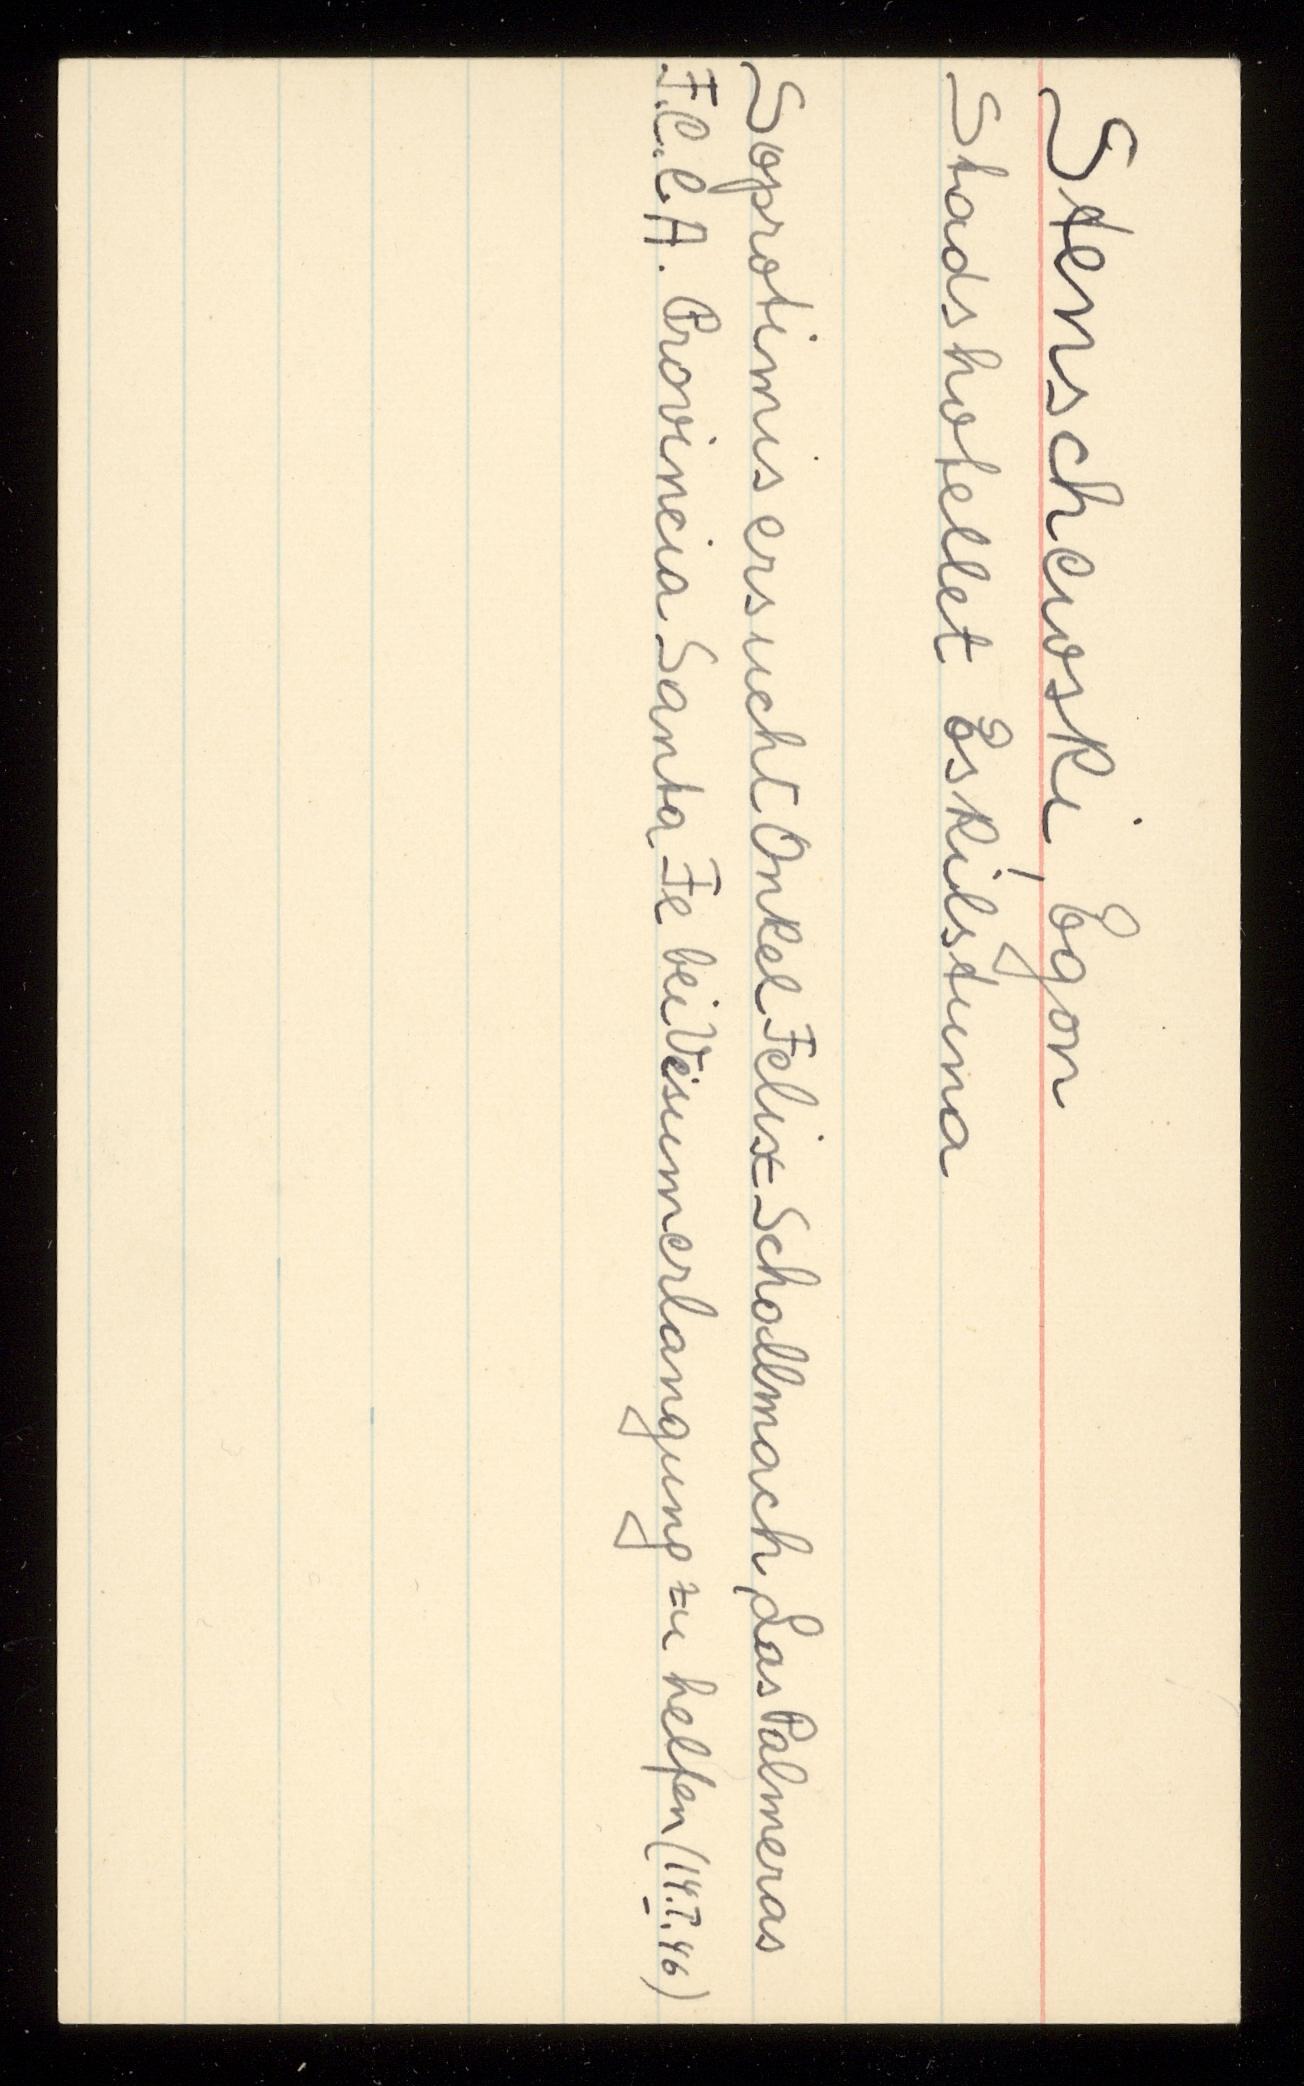 Stenschewski, Egon
Stadshotellet Eskilstuna
Soprotimis ersucht Onkel Felix Schollmach, Las Palmeras
F.C.C.A. Provincia Santa Fe bei Visumerlangung zu helfen (14.I.46)